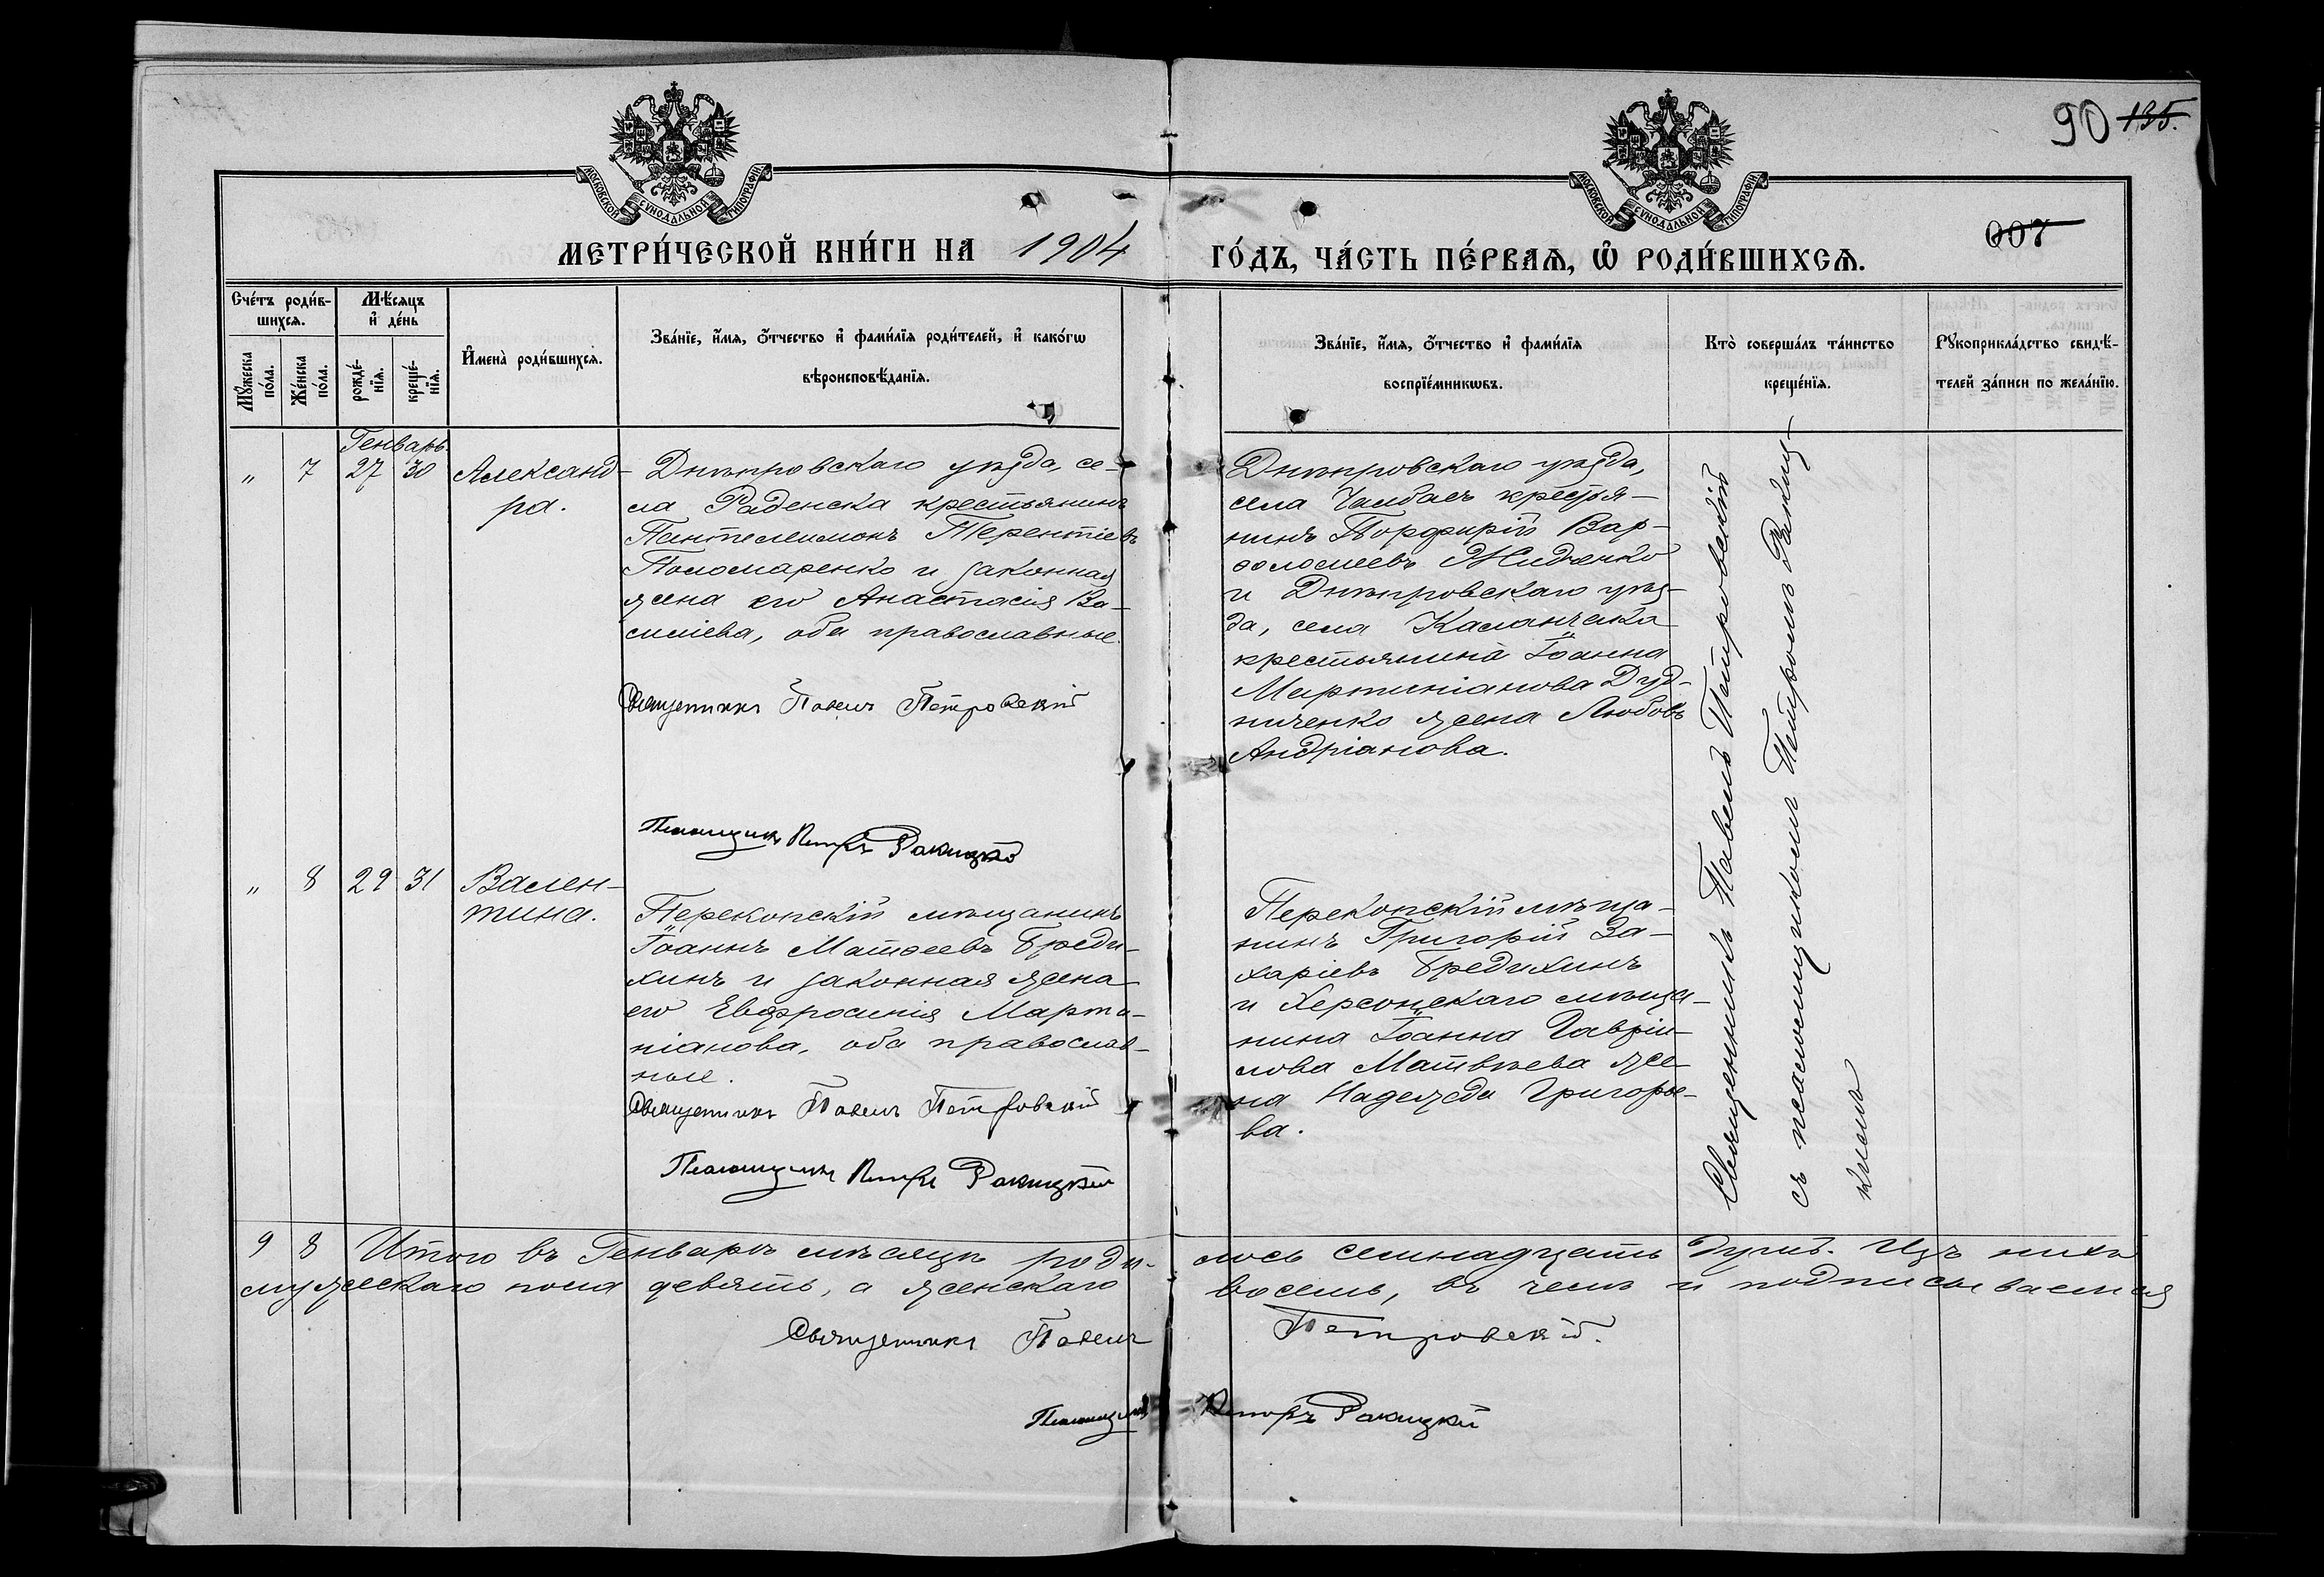 90 135.
МОСКОВСКОЙ СѴНОДАЛЬНОЙ ТИПОГРАФІИ
МОСКОВСКОЙ СѴНОДАЛЬНОЙ ТИПОГРАФІИ
007
МЕТРИ́ЧЕСКОЙ КНИ́ГИ НА 1904 ГО́ДЪ, ЧА́СТЬ ПЕ́РВАѦ, Ѡ҆ РОДИ́ВШИХСѦ.
Сче́тъ роди́в-
шихсѧ.
Мѣ́сѧцъ
и҆ де́нь
Мꙋ́жеска
по́ла.
Же́нска
по́ла.
рожде́-
нїѧ.
креще́-
нїѧ.
И҆мена̀ роди́вшихсѧ.
Зва́нїе, и҆́мѧ, ѻ҆́тчество и҆ фами́лїѧ роди́телей, и҆ како́гѡ
вѣроисповѣ́данїѧ.
Зва́нїе, и҆́мѧ, ѻ҆́тчество и҆ фами́лїѧ
воспрїе́мникѡвъ.
Кто̀ соверша́лъ та́инство
креще́нїѧ.
Рꙋкоприкла́дство свидѣ́-
телей за́писи по жела́нїю.
Генварь.
" 7 27 30 Александ-
ра.
Днѣпровскаго уѣзда, се-
ла Раденска крестьянинъ
Пантелеимонъ Терентіевъ
Пономаренко и законная
жена его Анастасія Ва-
силіева, оба православные.
Священникъ Павелъ Петровскій
Псаломщикъ Петръ Ракицкій
Днѣпровскаго уѣзда,
села Чалбасъ крестья-
нинъ Порфирій Вар-
ѳоломеевъ Жидченко
и Днѣпровскаго уѣз-
да, села Каланчака
крестьянина Іоанна
Мартиніанова Дуд-
ниченко жена Любовь
Андріанова.
" 8 29 31 Вален-
тина.
Перекопскій мѣщанинъ
Іоаннъ Матѳеевъ Бреди-
хинъ и законная жена
его Евфросинія Марти-
ніанова, оба православ-
ные.
Священникъ Павелъ Петровскій
Псаломщикъ Петръ Ракицкій
Перекопскій мѣща-
нинъ Григорій За-
харіевъ Бредихинъ
и Херсонскаго мѣща-
нина Іоанна Гавріи-
лова Матвѣева же-
на Надежда Григорье-
ва.
Священникъ Павелъ Петровскій
съ псаломщикомъ Петромъ Ракиц-
кимъ
9 8 Итого въ Генварѣ мѣсяцѣ роди- лось семнадцать душъ. Изъ нихъ
мужескаго пола девять, а женскаго восемь, въ чемъ и подписываемся
Священникъ Павелъ Петровскій.
Псаломщикъ Петръ Ракицкій